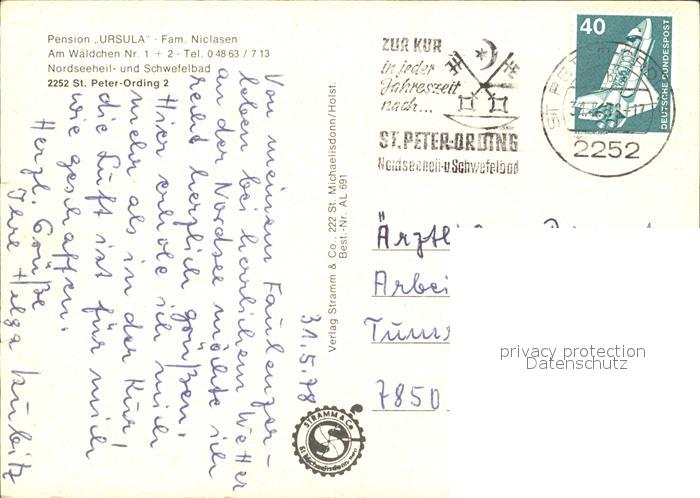 Pension „URSULA" · Fam. Niclasen
Am Wäldchen Nr. 1 + 2 · Tel. 0 48 63 / 7 13
Nordseeheil- und Schwefelbad
2252 St. Peter-Ording 2
31.5.78
Von meinem Faulenzer-
leben bei herrlichem Wetter
an der Nordsee möchte ich
recht herzlich grüßen.
Hier erhole ich mich
mehr als in der Kur!
die Luft ist für mich
wie geschaffen.
Herzl. Grüße
Ihre Helga
Verlag Stramm & Co., 222 St. Michaelisdonn/Holst.
Best.-Nr. AL 691
STRAMM & Co
St. Michaelisdonn
ZUR KUR
in jeder
Jahreszeit
nach...
ST. PETER-ORDING
Nordseeheil-u Schwefelbad
ST PETER
2252
40
DEUTSCHE BUNDESPOST
Ärztl
Arbei
7850
privacy protection
Datenschutz